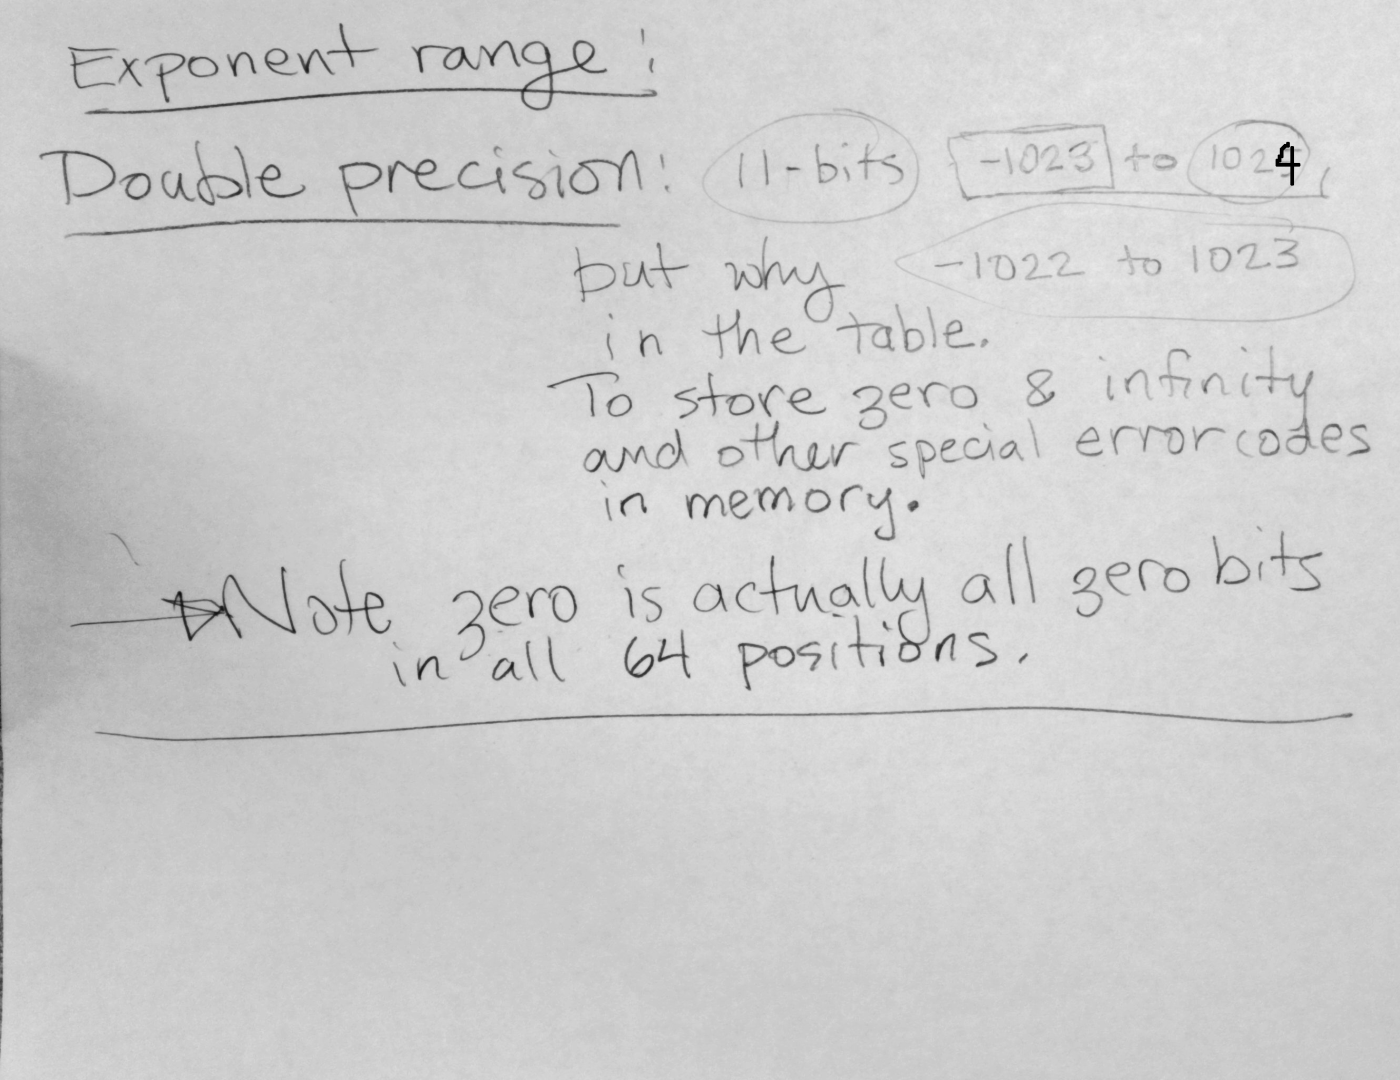 Exponent range:
Double precision: 11-bits -1023 to 1024,
but why -1022 to 1023
in the table.
To store zero & infinity
and other special error codes
in memory.
Note zero is actually all zero bits
in all 64 positions.